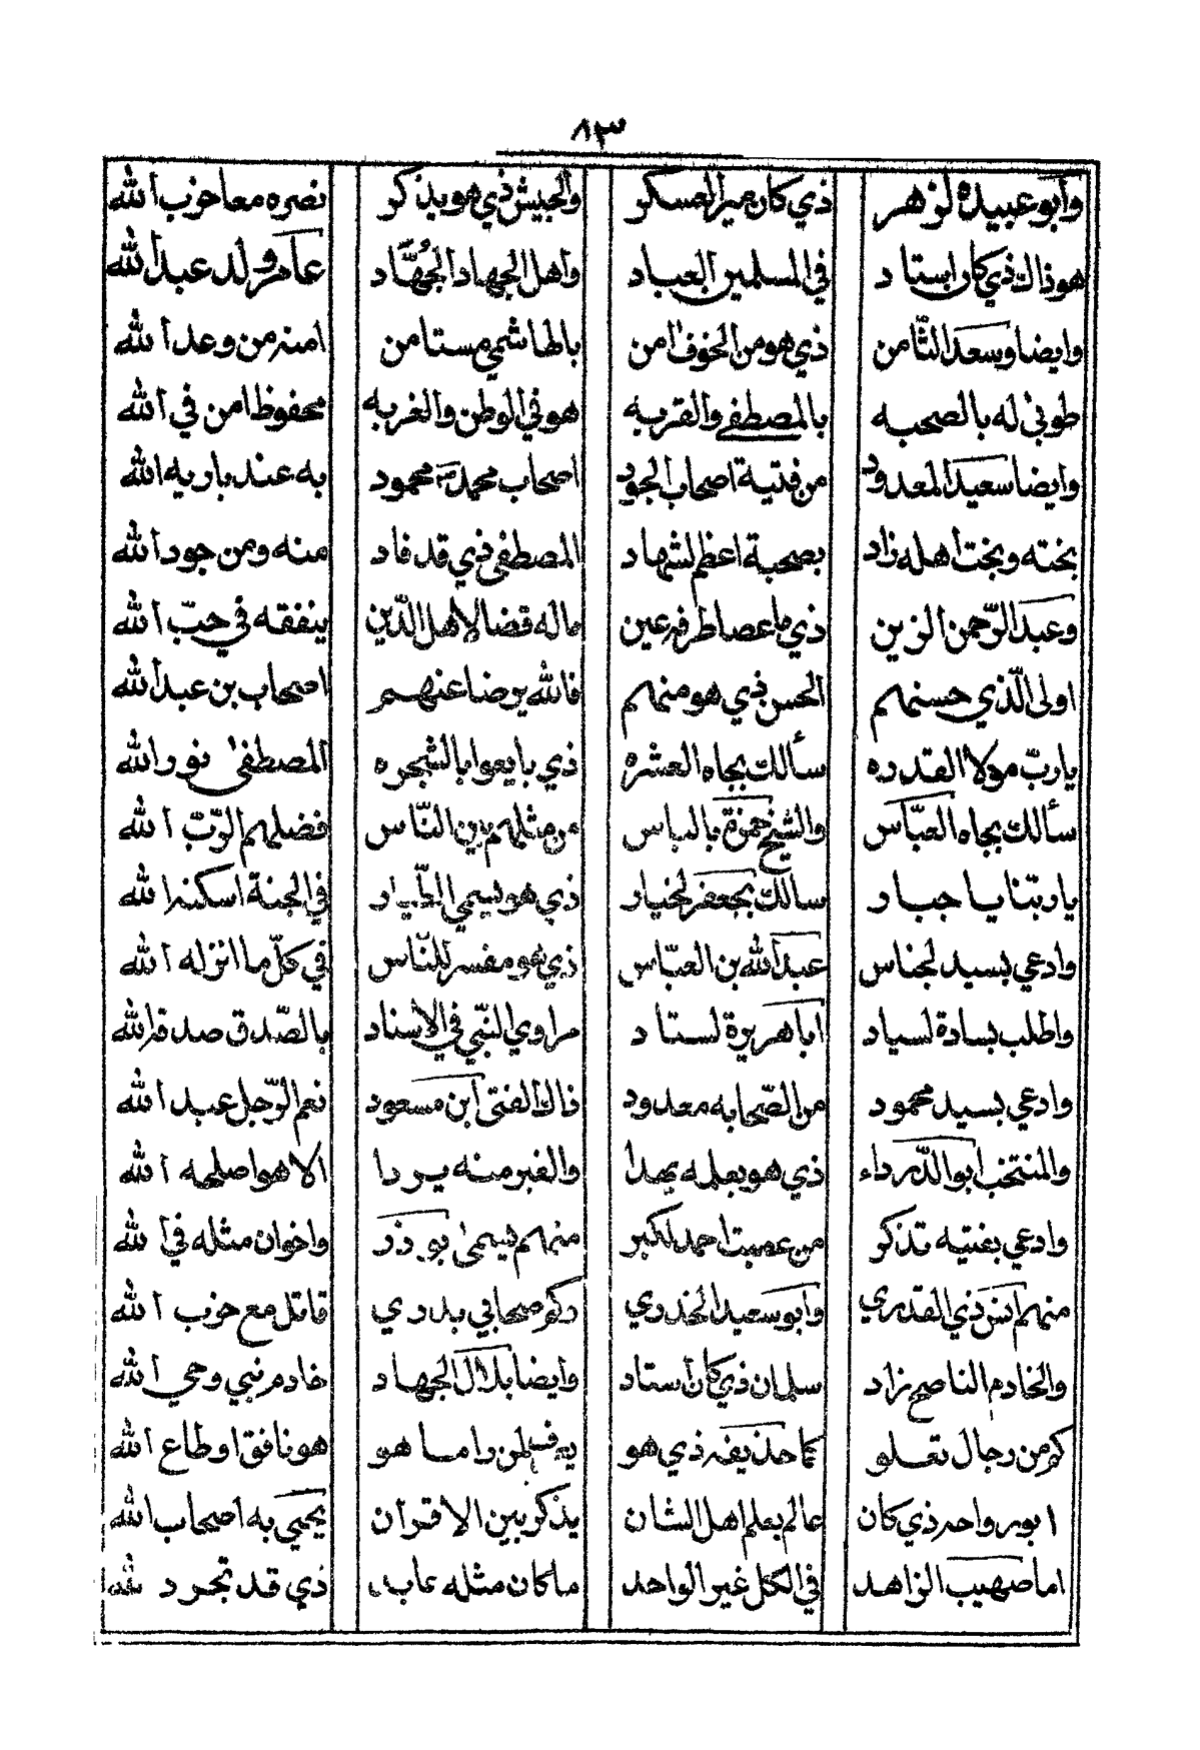 ٨٣
وأبو عبيدة لزهر ذي كان ميرالعسكر والجيش ذي هو يذكر نصره معا حزب الله
هوذاك ذي كان استاد في المسلمين العباد واهل الجهاد الجُهَّاد عامر ولد عبدالله
وايضا وسعد الثّامن ذي هو من الخوف امن بالهاشمي مستامن امنه من وعد الله
طوبى له بالصحبه بالمصطفى والقربه هو في الوطن والغربه محفوظ امن في الله
وايضا سعيد المعدود من فتية اصحاب الجود اصحاب محمد محمود به عند باريه الله
بخته وبخت اهله زاد بصحبة اعظم لشهاد المصطفى ذي قد فاد منه ومن جود الله
وعبد الرّحمن الزين ذي ما عصا طرفه عين ماله قضا لاهل الدّين ينفقه في حبّ الله
اولى الّذي حسنهم الحسن ذي هو منهم فالله يرضا عنهم اصحاب بن عبدالله
يا ربّ مولا القدره سألك بجاه العشره ذي بايعوا بالشجره المصطفى نور الله
سألك بجاه العبّاس والشيخ حمزة بالباس من مثلهم بين النّاس فضلهم الرّبّ الله
يا ربّنا يا جبار سالك بجعفر لخيار ذي هو يسمى الطّيار في الجنة اسكنه الله
وادعي بسيد لجناس عبدالله بن العبّاس ذي هو مفسر للنّاس في كلّ ما انزله الله
واطلب بسادة لسياد ابا هريرة لستاد مراوي النّبي في الاسناد بالصّدق صدقه الله
وادعي بسيد محمود من الصّحابه معدود ذاك الفتى ابن مسعود نعم الرّجل عبد الله
والمنتخب ابو الدّرداء ذي هو بعلمه يهدا والغير منه يردا الا هو اصلحه الله
وادعي بفتيه تذكر من عصبت احمد لكبر منهم يسمى بو ذر واخوان مثله في الله
منهم انس ذي القدري وأبو سعيد الخدري دكو صحابي بدري قاتل مع حزب الله
والخادم الناصح زاد سلمان ذي كان أستاد وأيضا بلال الجهاد خادم نبي وحي الله
كم من رجال تعلو كما حذيفه ذي هو به فسلمن واما هو هو نافق او طاع الله
ابو رواحه ذي كان عالم بعلم اهل الشان يذكر بين الاقران يحيى به اصحاب الله
اما صهيب الزاهد في الكل غير الواحد ما كان مثله عابد ذي قد تجرد لله